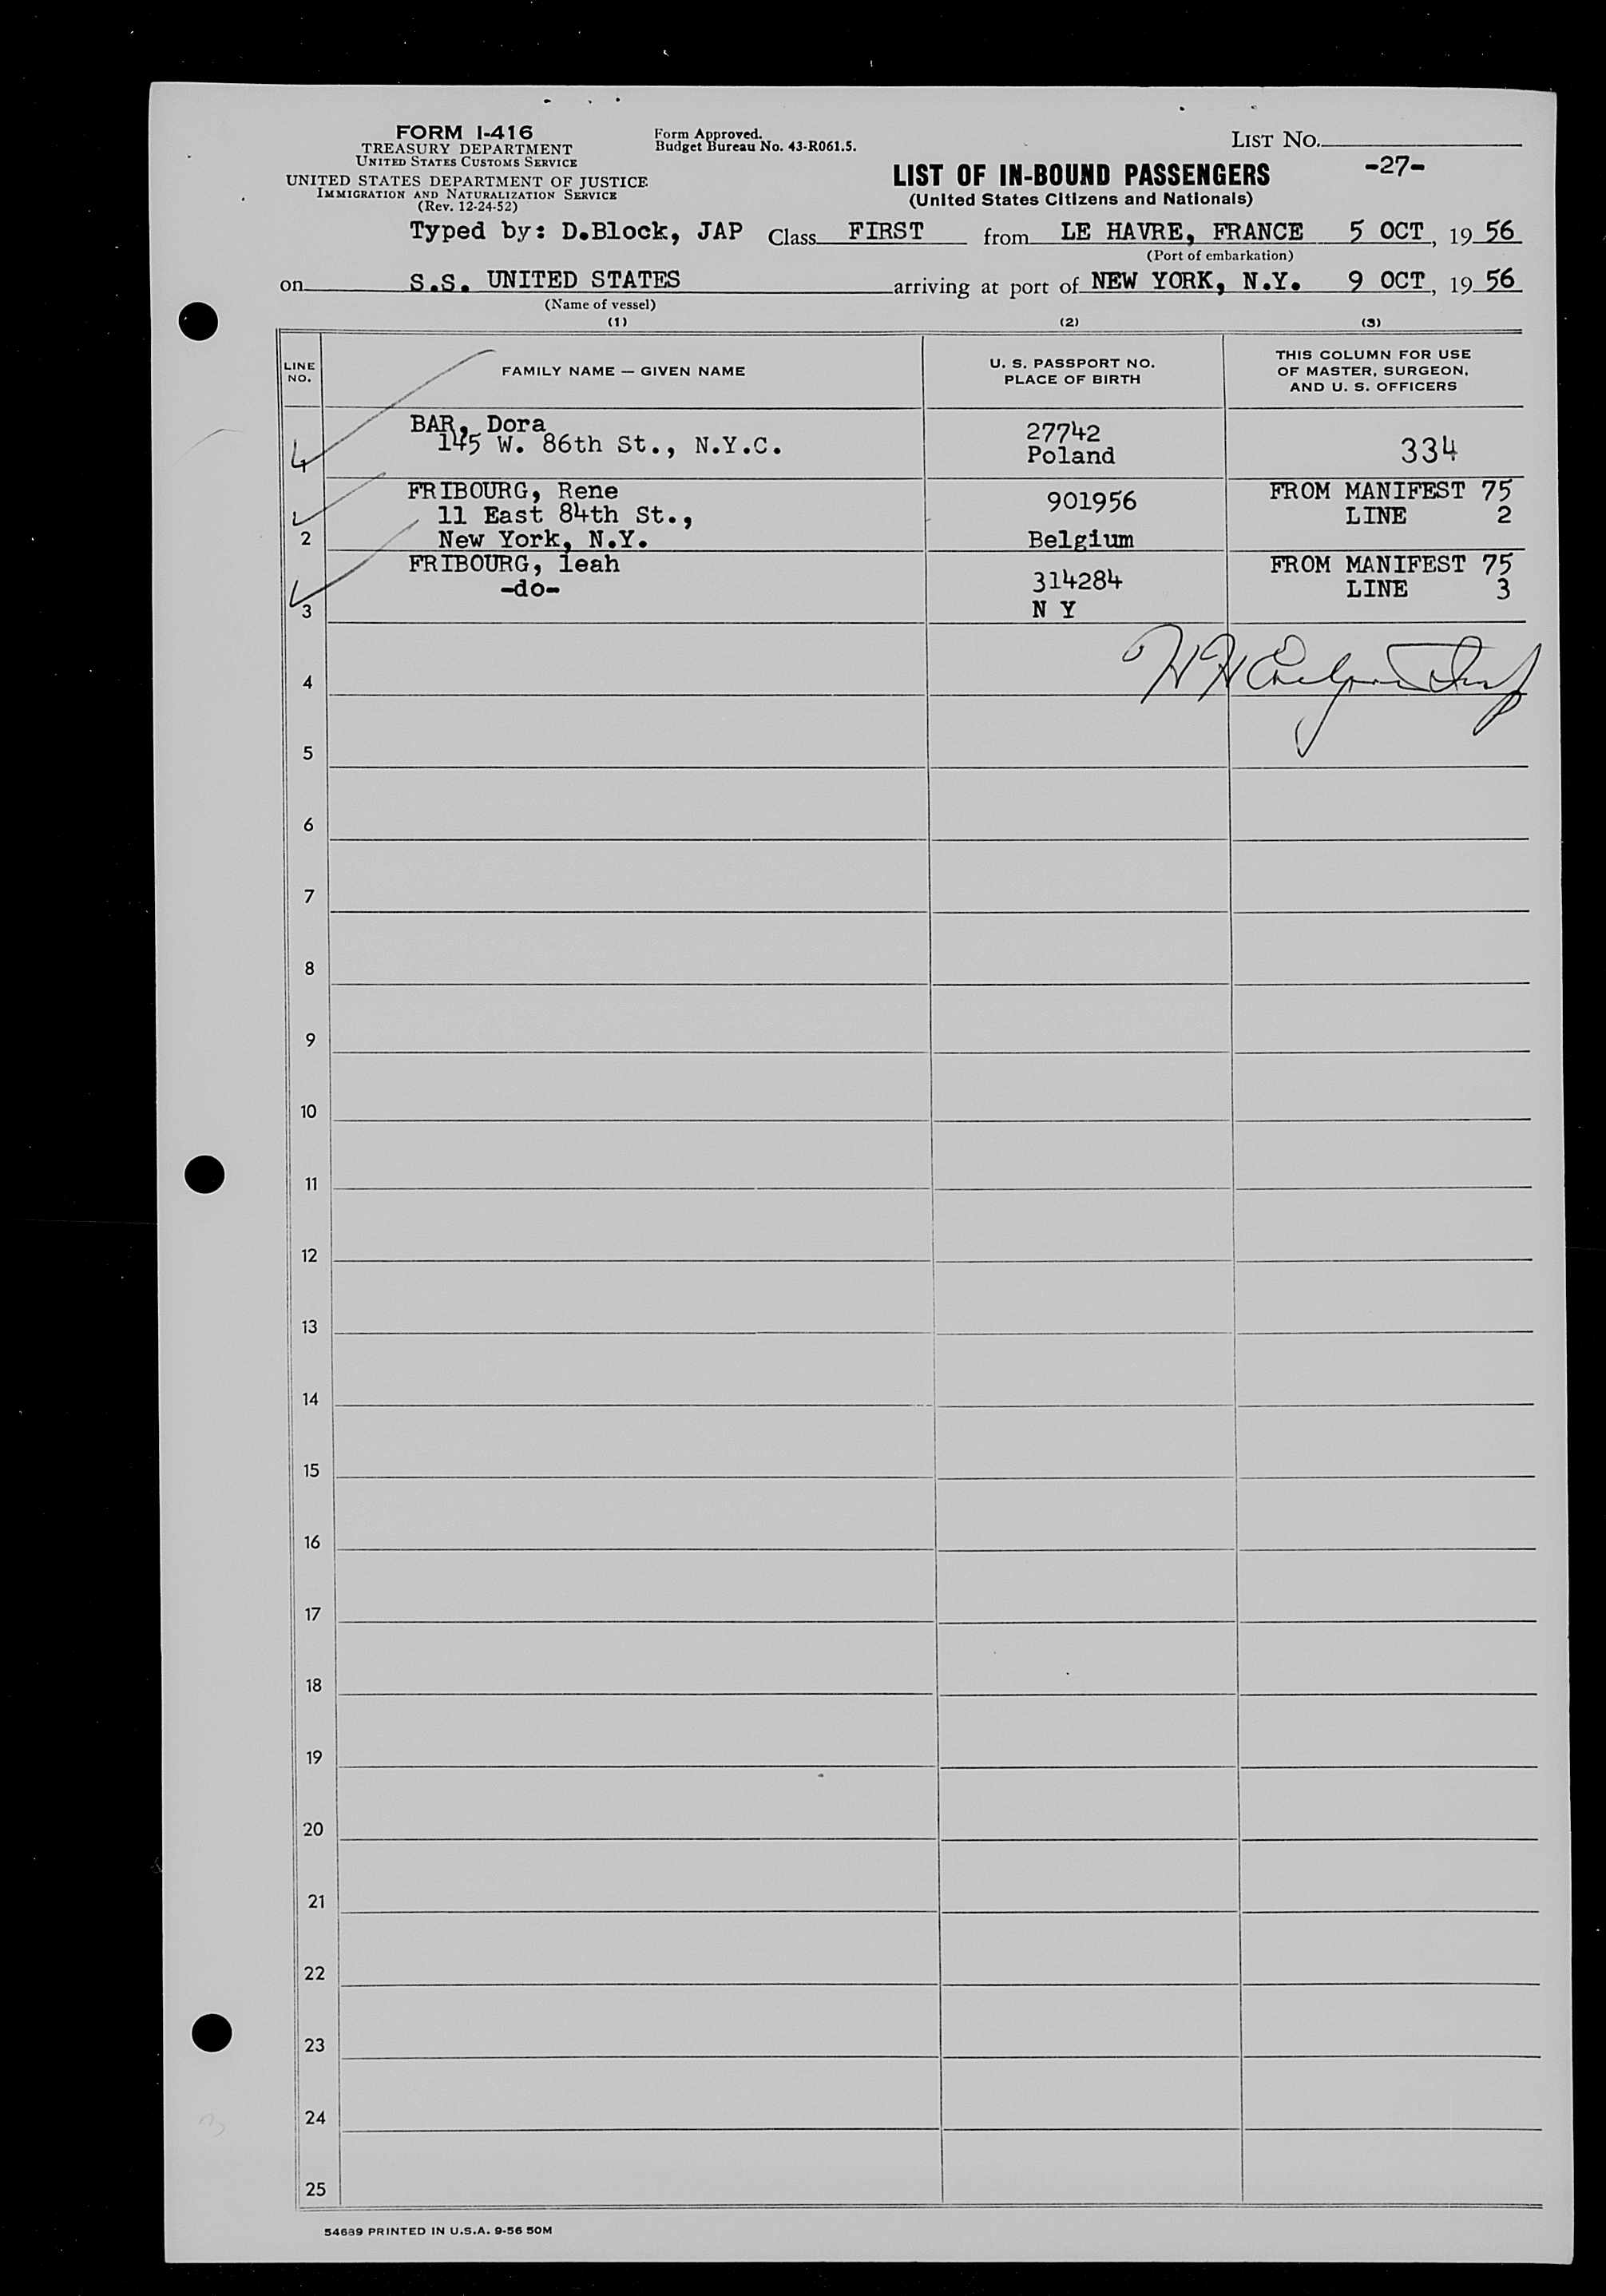 FORM I-416
TREASURY DEPARTMENT
UNITED STATES CUSTOMS SERVICE
UNITED STATES DEPARTMENT OF JUSTICE
IMMIGRATION AND NATURALIZATION SERVICE
(Rev. 12-24-52)
Form Approved.
Budget Bureau No. 43-R061.5.
LIST NO.
-27-
LIST OF IN-BOUND PASSENGERS
(United States Citizens and Nationals)
Typed by: D.Block, JAP Class FIRST from LE HAVRE, FRANCE 5 OCT, 19 56
(Port of embarkation)
on S.S. UNITED STATES arriving at port of NEW YORK, N.Y. 9 OCT, 19 56
(Name of vessel)
(1) (2) (3)
LINE NO.
FAMILY NAME — GIVEN NAME
U. S. PASSPORT NO.
PLACE OF BIRTH
THIS COLUMN FOR USE
OF MASTER, SURGEON,
AND U. S. OFFICERS
BAR, Dora
145 W. 86th St., N.Y.C.
27742
Poland
334
FRIBOURG, Rene
11 East 84th St.,
2 New York, N.Y.
901956
Belgium
FROM MANIFEST 75
LINE 2
FRIBOURG, leah
-do-
3
314284
N Y
FROM MANIFEST 75
LINE 3
4
5
6
7
8
9
10
11
12
13
14
15
16
17
18
19
20
21
22
23
24
25
54689 PRINTED IN U.S.A. 9-56 50M